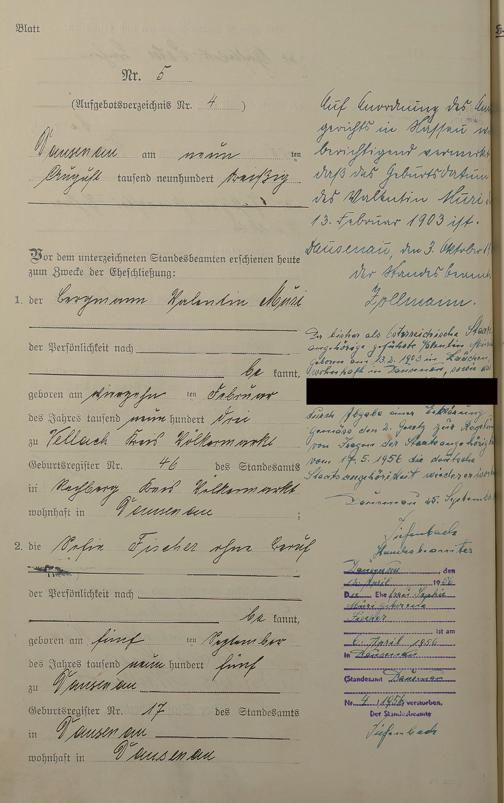 Blatt
Nr. 5
(Aufgebotsverzeichnis Nr. 4 )
Dausenau am neun ten
August tausend neunhundert dreißig
Vor dem unterzeichneten Standesbeamten erschienen heute
zum Zwecke der Eheschließung:
1. der Bergmann Valentin Muri
der Persönlichkeit nach
be kannt,
geboren am vierzehn ten Februar
des Jahres tausend neun hundert drei
zu Vellach Kreis Völkermarkt
Geburtsregister Nr. 46 des Standesamts
in Rechberg Kreis Völkermarkt
wohnhaft in Dausenau ;
2. die Sofie Fischer ohne Beruf
der Persönlichkeit nach
be kannt,
geboren am fünf ten September
des Jahres tausend neun hundert fünf
zu Dausenau
Geburtsregister Nr. 17 des Standesamts
in Dausenau
wohnhaft in Dausenau
Auf Anordnung des
gerichts in Nassau
berichtigend vermerkt
daß das Geburtsdatum
des Valentin Muri
13. Februar 1903 ist.
Dausenau, den 3. Oktober
der Standesbeamte
Zollmann.
Der bisher als österreichische
angehörige geführte Valentin
geboren am 13.2.1903 in
wohnhaft in Dausenau,
durch Abgabe einer Erklärung
gemäss des 2. Gesetz zur Regelung
von Fragen der Staatsangehörigkeit
vom 17.5.1956 die deutsche
Staatsangehörigkeit wieder
Dausenau 25. September
Tiefenbach
Standesbeamter
Dausenau, den
April 1956
D Ehefrau Sophie
Muri geborene
Fischer
ist am
6. April 1956
in Dausenau
(Standesamt Dausenau
Nr. 4 / 1956) verstorben.
Der Standesbeamte
Tiefenbach